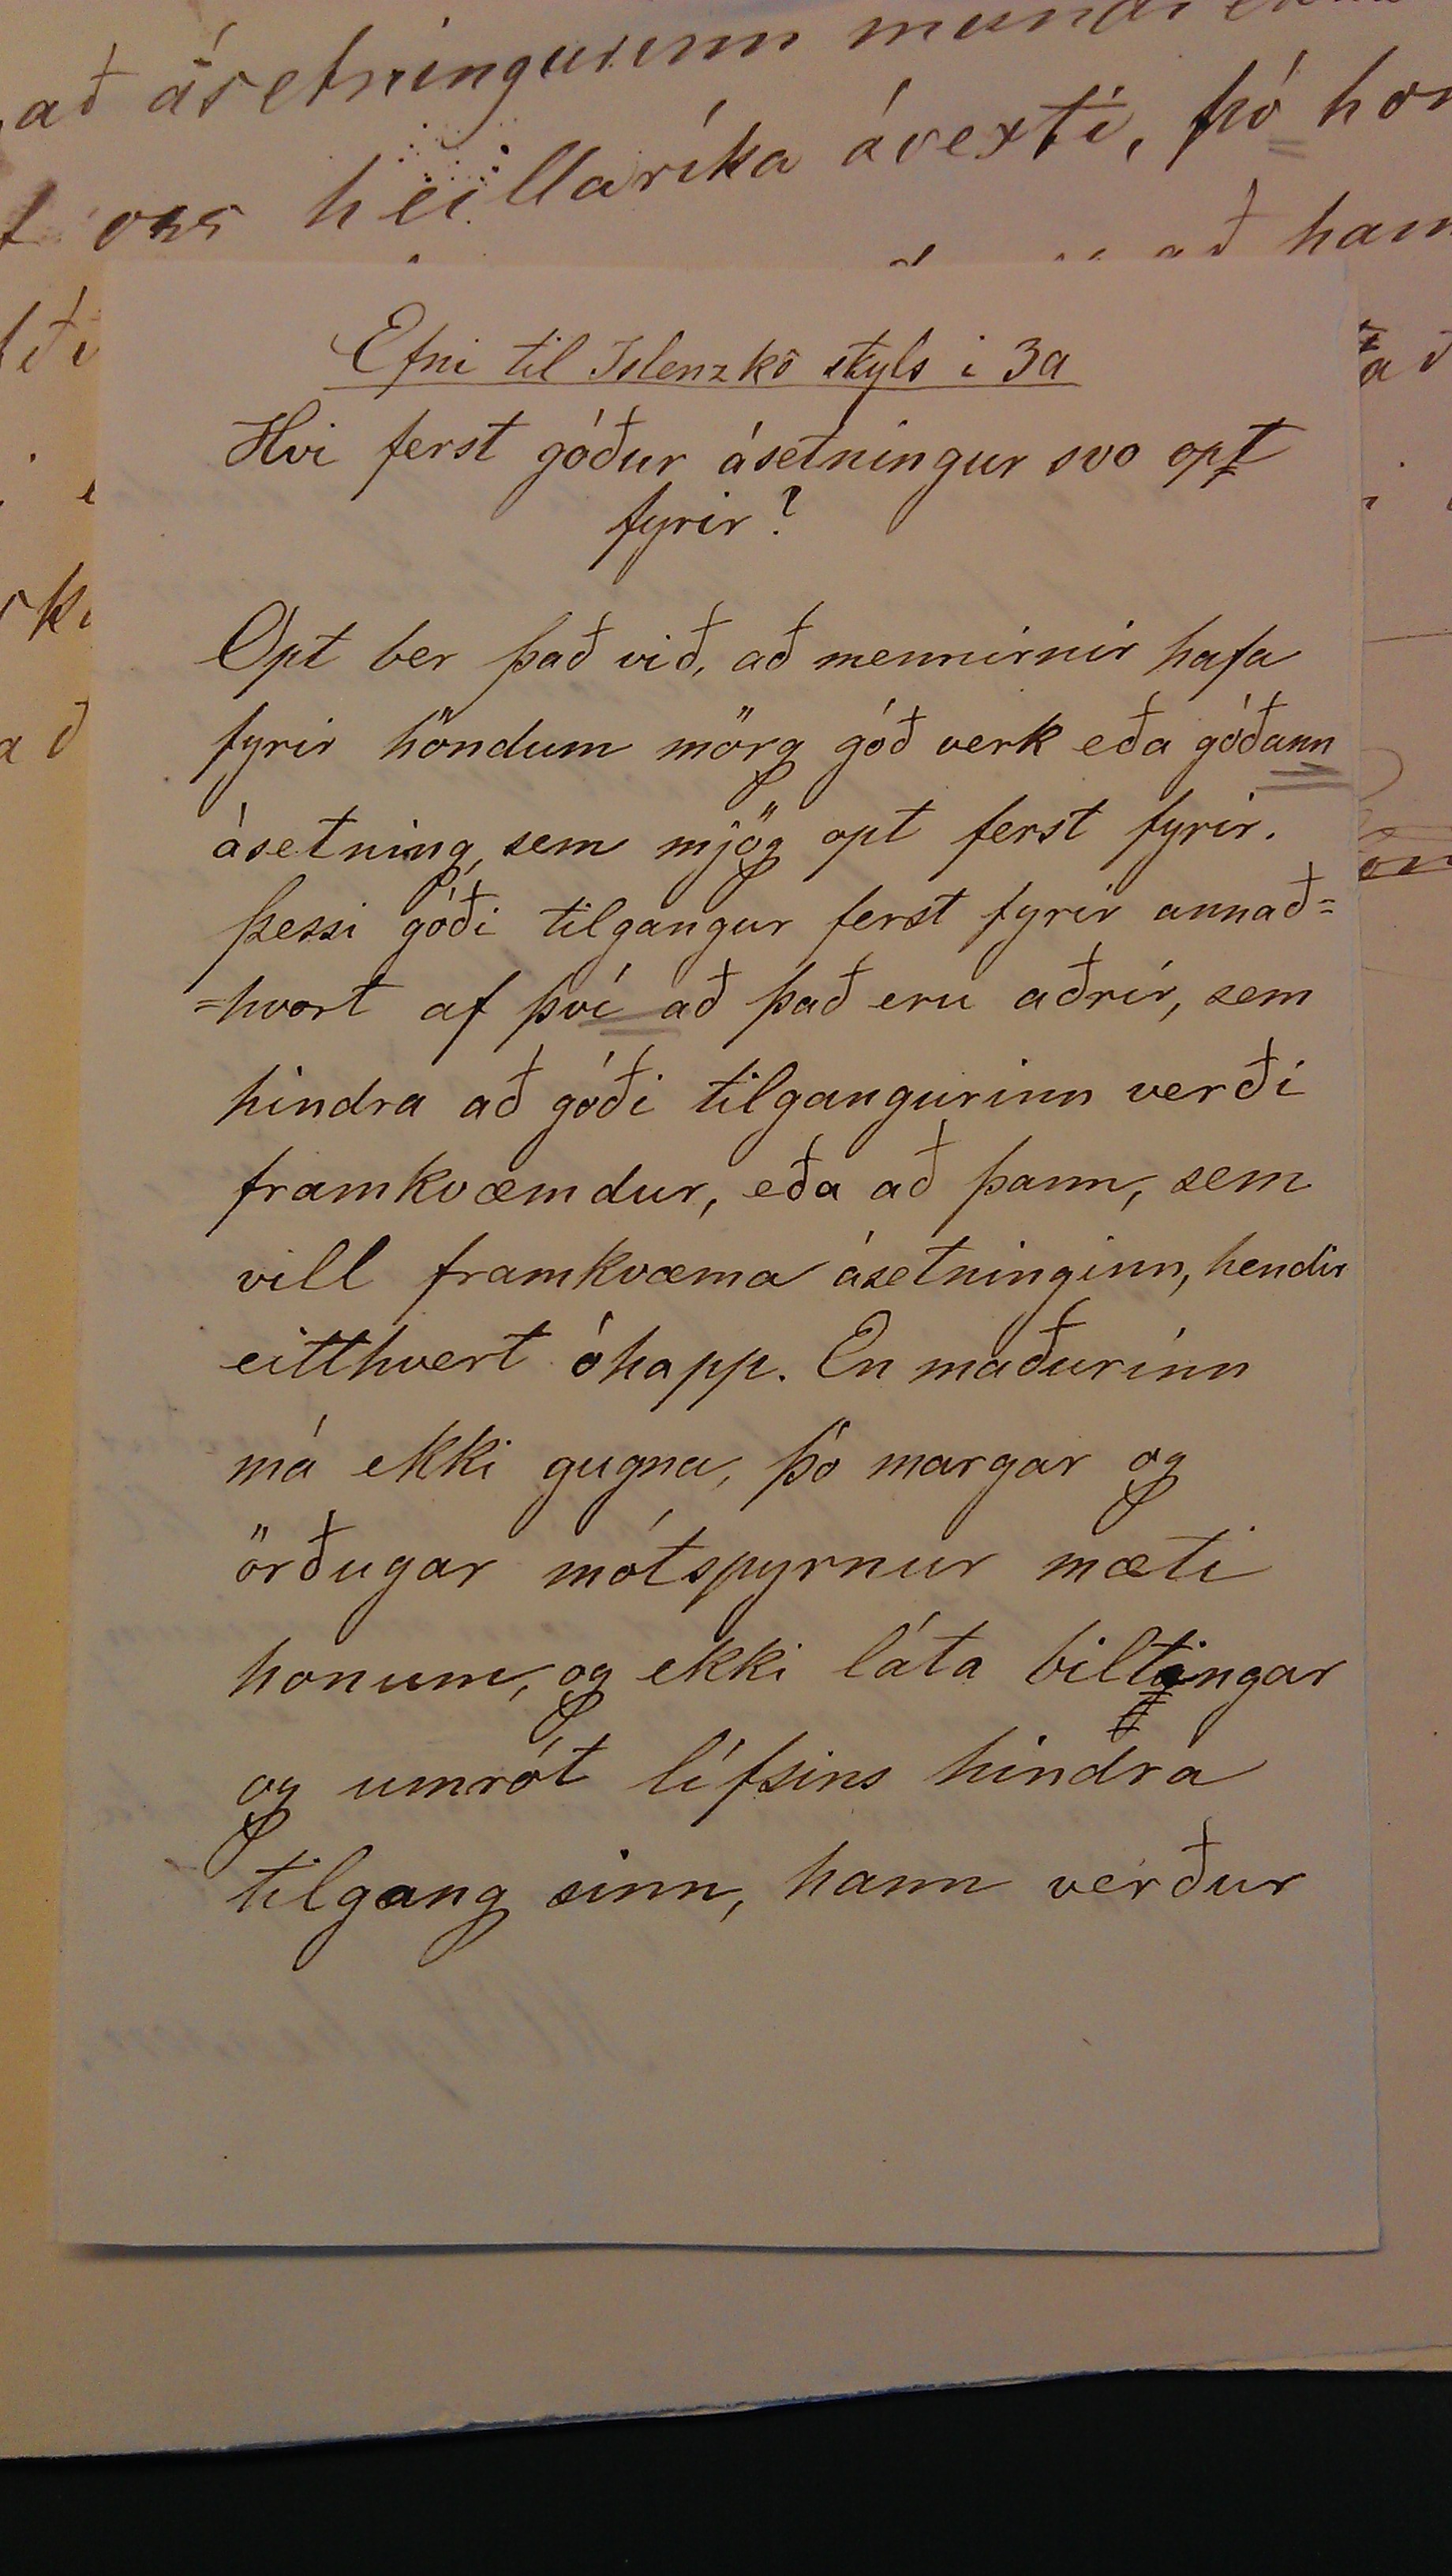 að ásetningurinn mundi
oss heillaríka ávexti, þó
að
Efni til Islenzks styls i 3a
Hvi ferst góður ásetningur svo opt
fyrir?
Opt ber það við, að mennirnir hafa
fyrir höndum mörg góð verk eða góðann
ásetning, sem mjög opt ferst fyrir.
Þessi góði tilgangur ferst fyrir annað=
=hvort af því að það eru aðrir, sem
hindra að góði tilgangurinn verði
framkvæmdur, eða að þann, sem
vill framkvæma ásetninginn, hendir
eitthvert óhapp. En maðurinn
má ekki gugna, þó margar og
örðugar mótspyrnur mæti
honum, og ekki láta biltingar
og umrót lífsins hindra
tilgang sinn, hann verður